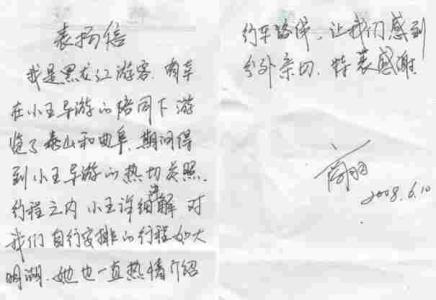 表扬信
我是黑龙江游客，有幸
在小王导游的陪同下游
览了泰山和曲阜，期间得
到小王导游的热切关照。
约程之内 小王详细讲解 对
我们自行安排的行程如大
明湖，她也一直热情介绍
行车路线，让我们感到
分外亲切，特表感谢
2008.6.10